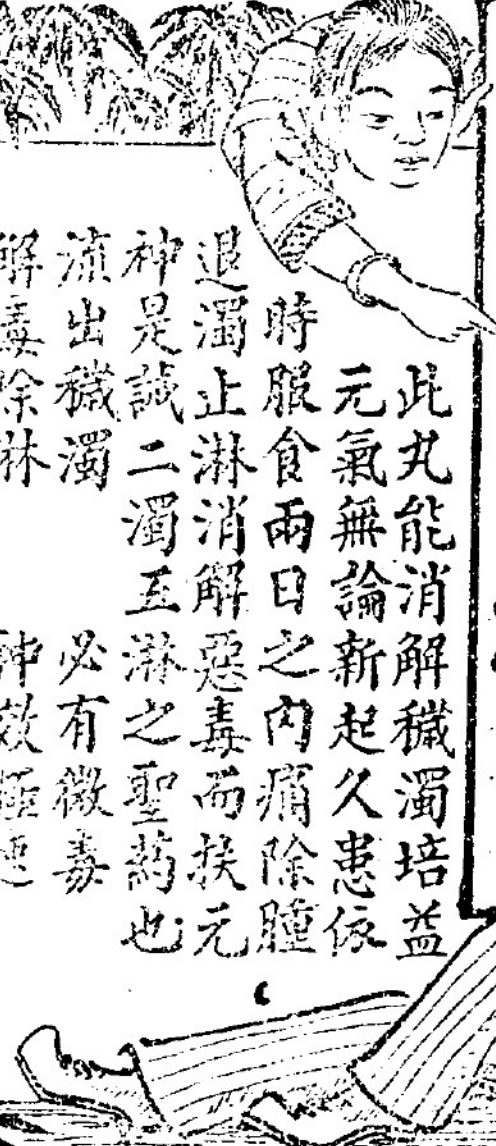 此丸能消解穢濁培益
元氣無論新起久患依
時服食兩日之內痛除腫
退濁止淋消解惡毒而扶元
神是誠二濁五淋之聖葯也
流出穢濁 必有微毒
解毒除淋 神效極速